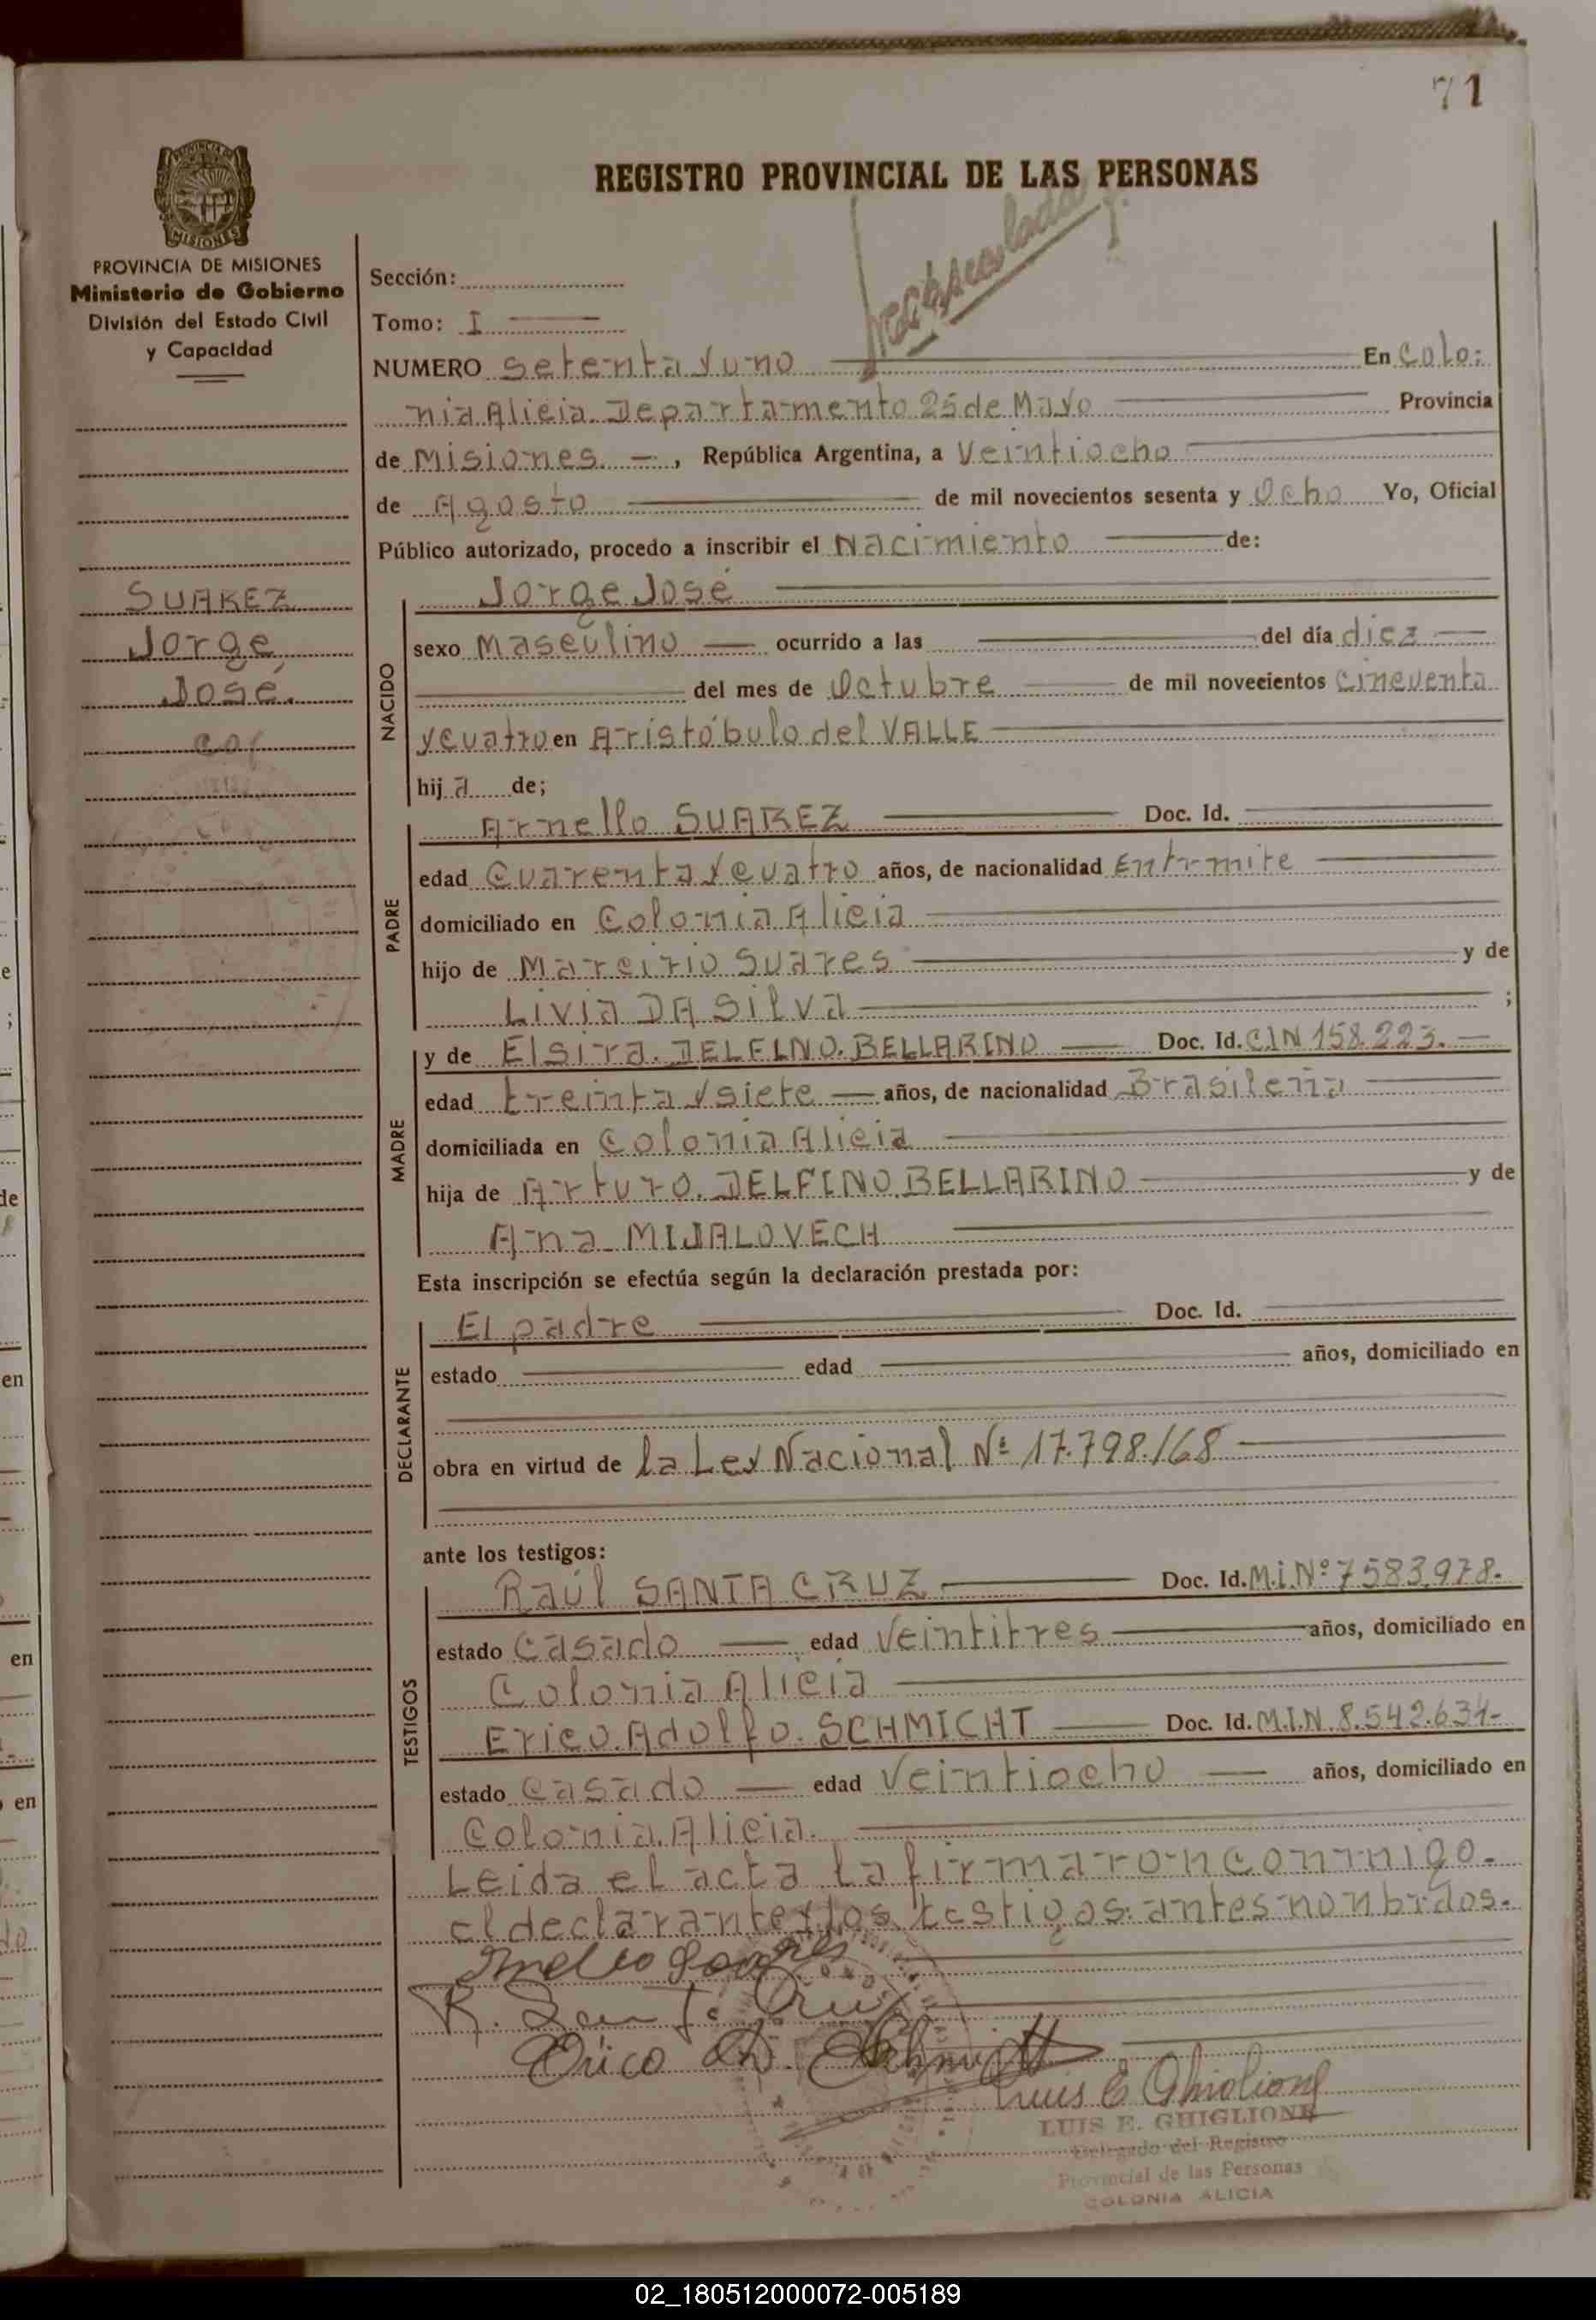 71
REGISTRO PROVINCIAL DE LAS PERSONAS
PROVINCIA DE MISIONES
MISIONES
PROVINCIA DE MISIONES
Ministerio de Gobierno
División del Estado Civil
y Capacidad
SUAREZ
Jorge
José.
Sección:
Tomo: I
NUMERO setenta y uno En Colo:
nia Alicia Departamento 25 de Mayo Provincia
de Misiones — , República Argentina, a Veintiocho
de Agosto de mil novecientos sesenta y Ocho Yo, Oficial
Público autorizado, procedo a inscribir el Nacimiento de:
NACIDO
Jorge José
sexo Masculino — ocurrido a las del día diez
del mes de Octubre de mil novecientos cincuenta
y cuatro en Aristóbulo del VALLE
hij a de;
PADRE
Arnello SUAREZ Doc. Id.
edad Cuarenta y cuatro años, de nacionalidad
domiciliado en Colonia Alicia
hijo de Marcirio Suares y de
Livia DA Silva ;
MADRE
y de Elsira. DELFINO. BELLARINO Doc. Id. C.I.N 158.223. —
edad treinta y siete — años, de nacionalidad Brasileña
domiciliada en Colonia Alicia
hija de Arturo. DELFINO. BELLARINO y de
Ana MIJALOVECH
Esta inscripción se efectúa según la declaración prestada por:
DECLARANTE
El padre Doc. Id.
estado edad años, domiciliado en
obra en virtud de la Ley Nacional Nº 17.798./68
ante los testigos:
TESTIGOS
Raúl SANTA CRUZ Doc. Id. M.i. Nº 7583.978.
estado Casado — edad Veintitres años, domiciliado en
Colonia Alicia
Erico. Adolfo. SCHMICHT Doc. Id. M.I.N. 8.542.634-
estado Casado — edad Veintiocho — años, domiciliado en
Colonia. Alicia.
Leida el acta la firmaron conmigo.
el declarante y los testigos: antes nonbrados.
R. Santa Cruz
Erico Ad. Schmidt
Luis E Ghiglione
LUIS E. GHIGLIONE
Delegado del Registro
Provincial de las Personas
COLONIA ALICIA
02_180512000072-005189